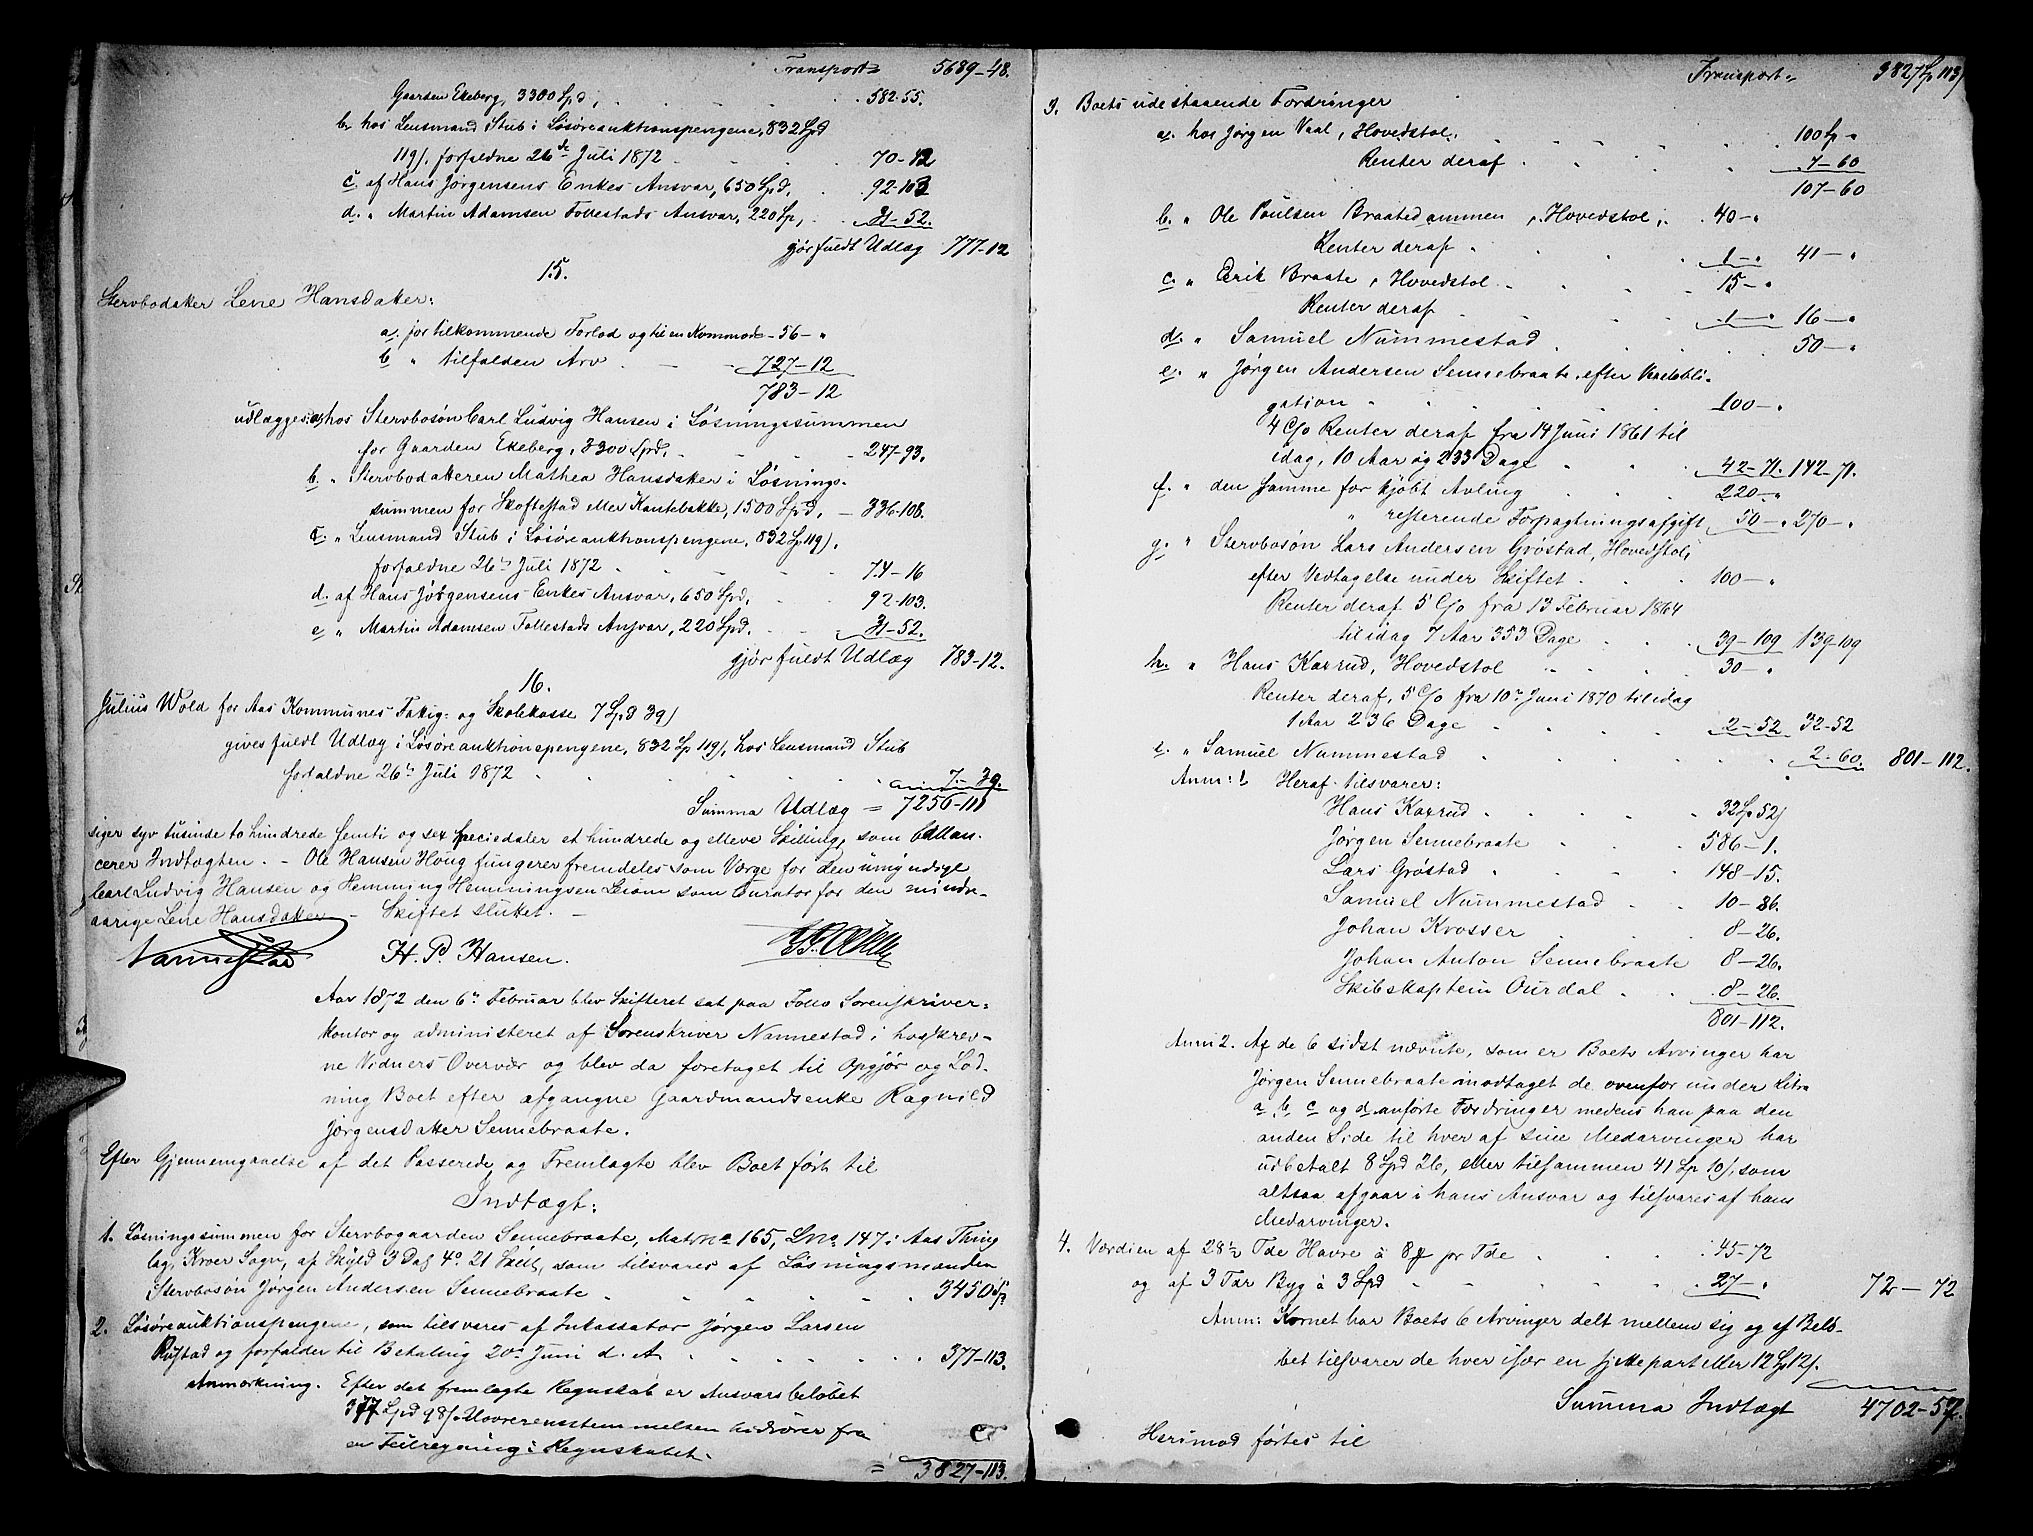 Transport = 5689-48.
Gaarden Ekeberg, 3300 Spd, . . . 582-55.
b. hos Lensmand Stub i Løsøreauktionspengene, 832 Spd
119/. forfaldne 26de Juli 1872 . . . 70-42
c. af Hans Jørgensens Enkes Ansvar, 650 Spd. . . 92-103
d. " Martin Adamsen Follestads Ansvar, 220 Sp, . . 31-52.
gjør fuldt Udlæg 777-12
15.
Stervbodatter Lene Hansdatter:
a. for tilkommende Forlod og til en Kommode - 56 - "
b " tilfalden Arv . - - 727-12
783-12
udlægges: a) hos Stervbosøn Carl Ludvig Hansen i Løsningssummen
for Gaarden Ekeberg, 3300 Spd. - - 247-93.
b. " Stervbodatteren Mathea Hansdatter i Løsnings-
summen for Skoftestad eller Kantebakke, 1500 Spd, - 336-108.
c. " Lensmand Stub i Løsøreauktionspengene, 832 Sp 119/.
forfaldne 26de Juli 1872 . - - - 74-16
d. af Hans Jørgensens Enkes Ansvar, 650 Spd. . . 92-103.
e " Martin Adamsen Follestads Ansvar, 220 Spd. . . 31-52.
gjør fuldt Udlæg 783-12.
16.
Julius Wold for Aas Kommunes Fattig- og Skolekasse 7 Spd 39/
gives fuldt Udlæg i Løsøreauktionspengene, 832 Sp 119/, hos Lensmand Stub
forfaldne 26de Juli 1872 . . . 7-39.
Summa Udlæg = 7256-111
siger syv tusinde to hundrede femti og sex Speciedaler et hundrede og elleve Skilling, som ballan-
cerer Indtægten. - Ole Hansen Houg fungerer fremdeles som Værge for den umyndige
Carl Ludvig Hansen og Hemming Hemmingsen som Curator for den mindre-
aarige Lene Hansdatter - Skiftet sluttet. -
Nannestad H. P. Hansen.
Aar 1872 den 6te Februar blev Skifteret sat paa Follo Sorenskriver-
kontor og administreret af Sorenskriver Nannestad i hoskrev-
ne Vidners Overvær og blev da foretaget til Opgjør og Lod-
ning Boet efter afgangne Gaardmandsenke Ragnild
Jørgensdatter Sennebraate.
Efter Gjennemgaaelse af det Passerede og Fremlagte blev Boet ført til
Indtægt:
1. Løsningssummen for Stervbogaarden Sennebraate, Matr no 165, Lno 147 i Aas Thing
lag, Kroer Sogn, af Skyld 3 Dal 4 o 21 Skill, som tilsvares af Løsningsmanden
Stervbosøn Jørgen Andersen Sennebraate . . . 3450 Sp
2. Løsøreauktionspengene, som tilsvares af Inkassator Jørgen Larsen
Rustad og forfalder til Betaling 20de Juni d. A. . . . 377-113.
Anmærkning. Efter det fremlagte Regnskab er Ansvarsbeløbet
377 Spd 98/. Uoverensstemmelsen hidrører fra
en Feilregning i Regnskabet.
= 3827-113.
Transport = 3827 Sp 113/
3. Boets udestaaende Fordringer
a. hos Jørgen Vaal, Hovedstol. . . . 100 Sp "
Renter deraf . . . 7-60
107-60
b. " Ole Paulsen Braatedammen, Hovedstol, . 40 - "
Renter deraf . . . 1 - " 41 - "
c. " Erik Braate, Hovedstol . . . 15 - "
Renter deraf . . . 1 - " 16 - "
d. " Samuel Nummestad . . . 50 - "
e. " Jørgen Andersen Sennebraate, efter Panteobli-
gation . . . 100 - "
4 C/o Renter deraf fra 14 Juni 1861 til
idag, 10 Aar og 233 Dage . . . 42-71. 142-71.
f. " den Samme for kjøbt Avling . . . 220 - "
" resterende Forpagtningsafgift 50 - " 270 - "
g. " Stervbosøn Lars Andersen Grøstad, Hovedstol,
efter Vedtagelse under Skiftet . . . 100 - "
Renter deraf 5 C/o fra 13 Februar 1864
til idag 7 Aar 353 Dage . . . 39-109 139-109
h. " Hans Kaxrud, Hovedstol . . . 30 - "
Renter deraf, 5 C/o fra 10de Juni 1870 til idag
1 Aar 236 Dage . . . 2-52 32-52
i. " Samuel Nummestad . . . 2-60. 801-112.
Anm: 1 Heraf tilsvarer:
Hans Kaxrud . . . 32 Sp 52/
Jørgen Sennebraate . . . 586-1.
Lars Grøstad . . . 148-15.
Samuel Nummestad . . 10-86.
Johan Krosser . . . 8-26.
Johan Anton Sennebraate 8-26.
Skibskaptein Ourdal . . . 8-26.
801-112.
Anm 2. Af de 6 sidst nævnte, som er Boets Arvinger har
Jørgen Sennebraate indtaget de ovenfor under Litra
a, b c og d anførte Fordringer medens han paa den
anden Side til hver af sine Medarvinger har
udbetalt 8 Spd 26, eller tilsammen 41 Sp 10/, som
altsaa afgaar i hans Ansvar og tilsvares af hans
Medarvinger.
4. Værdien af 28½ Tde Havre à 8 pr Tde . . . 45-72
og af 3 Tdr Byg à 3 Spd . . . 27 - " 72-72
Anm: Kornet har Boets 6 Arvinger delt mellem sig og af Belø-
bet tilsvarer de hver især en sjettepart eller 12 Sp 12/.
Summa Indtægt 4702-57.
Herimod førtes til